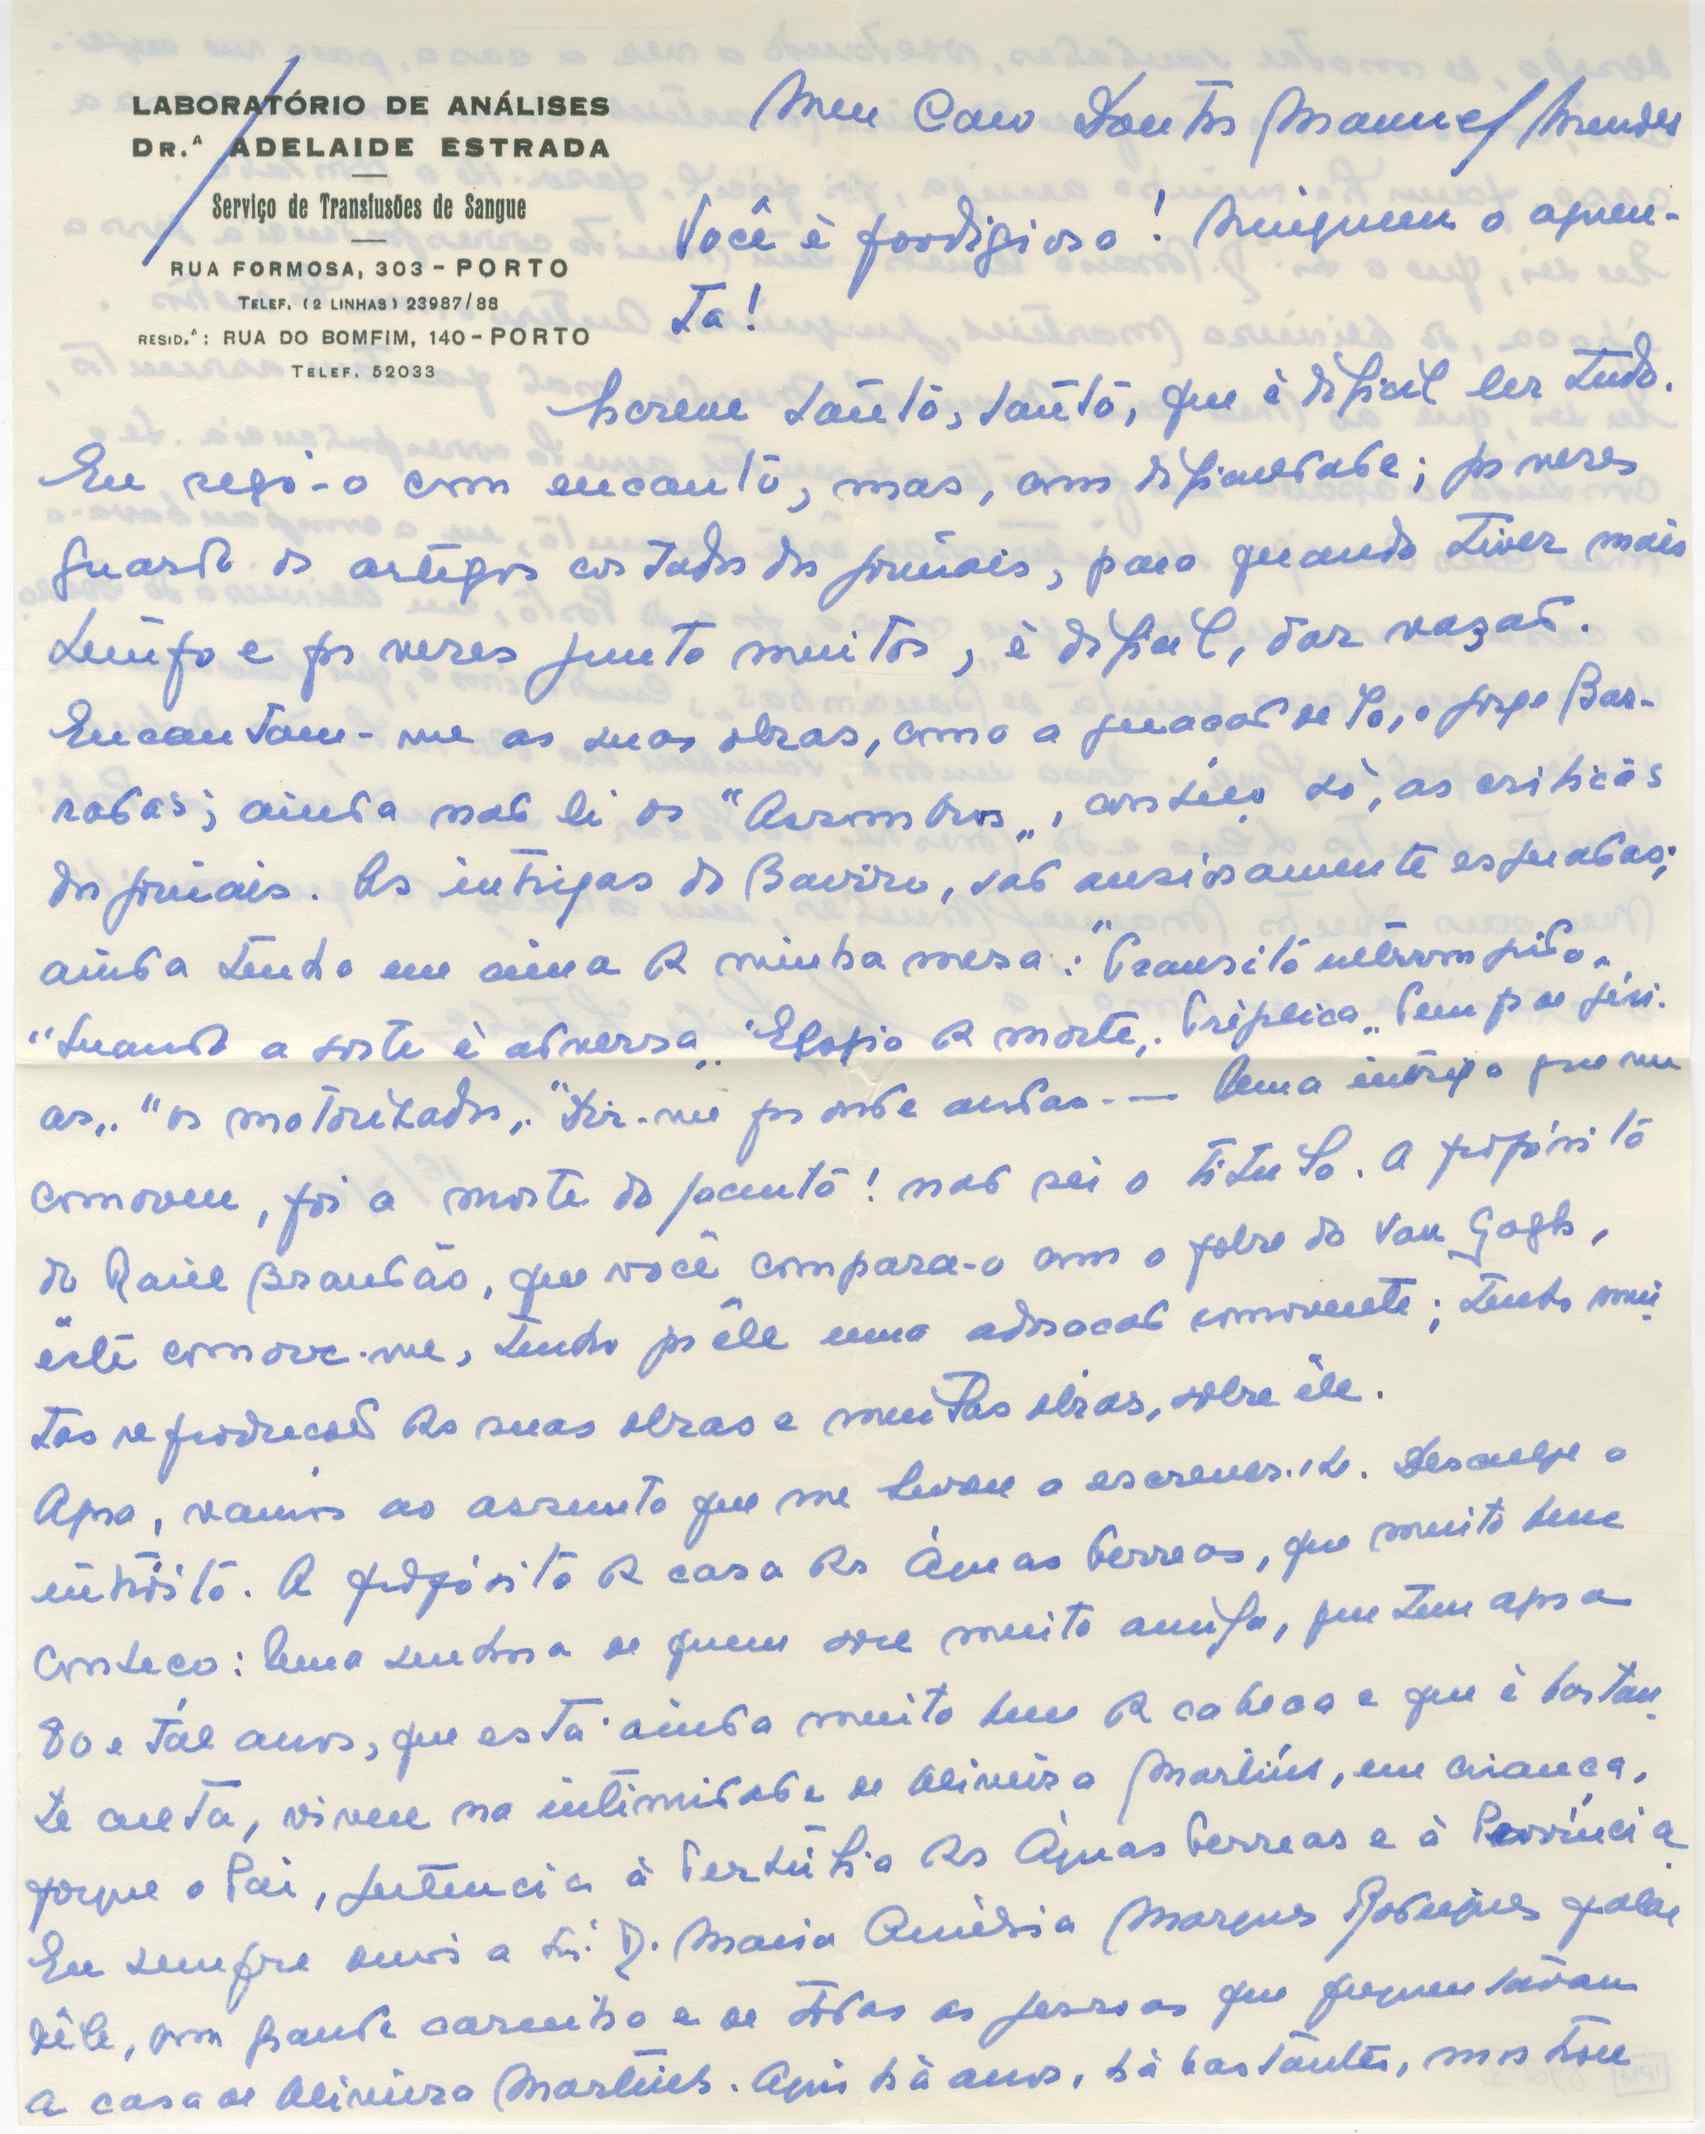 LABORATÓRIO DE ANÁLISES
DR.ª ADELAIDE ESTRADA
Serviço de Transfusões de Sangue
RUA FORMOSA, 303 - PORTO
TELEF. (2 LINHAS) 23987/88
RESID.ª: RUA DO BOMFIM, 140 - PORTO
TELEF. 52033
Meu Caro Doutor Manuel Mendes
Você é prodigioso! Ninguem o aguen-
ta!
Escreve tanto, tanto, que é dificil ler tudo.
Eu sego-o com encanto, mas, com dificuldade; por veses
guardo os artigos cortados dos jornais, para quando tiver mais
tempo e por veses junto muitos, é dificil, dar vazão.
Encantam-me as suas obras, como a de lo, o Jorge Bar-
radas; ainda não li os "Assombros", conheço só, as criticas
dos jornais. As intrigas do Bairro, são ansiosamente esperadas;
ainda tenho em cima da minha mesa: "Transito interrompido"
"Quando a sorte é adversa" "Elogio da morte" Tréplica" Tempo de féri-
as" "os motorizados" "Diz-me por onde andas — Uma intriga que me
comoveu, foi a morte do Jacinto! não sei o titulo. A propósito
do Raul Brandão, que você compara-o com o pobre do Van Gogh,
êste comove-me, tenho por êle uma adoração comovente; tenho mui-
tas reproduções das suas obras e muitas obras, sobre êle.
Agora, vamos ao assunto que me levou a escrever-lhe. Desculpe o
intróito. A propósito da casa das Águas Ferreas, que muito bem
conheço: Uma senhora de quem sou muito amiga, que tem agora
80 e tal anos, que está ainda muito bem da cabeça e que é bastan-
te culta, viveu na intimidade de Oliveira Martins, em criança,
porque o Pai, pertencia à Tertúlia das Águas Ferreas e à Província.
Eu sempre ouvi a Sr.ª D. Maria Amélia Marques Rodrigues falar
dêle, com grande carinho e de todas as pessoas que frequentavam
a casa de Oliveira Martins. Aqui há anos, há bastantes, mostrou